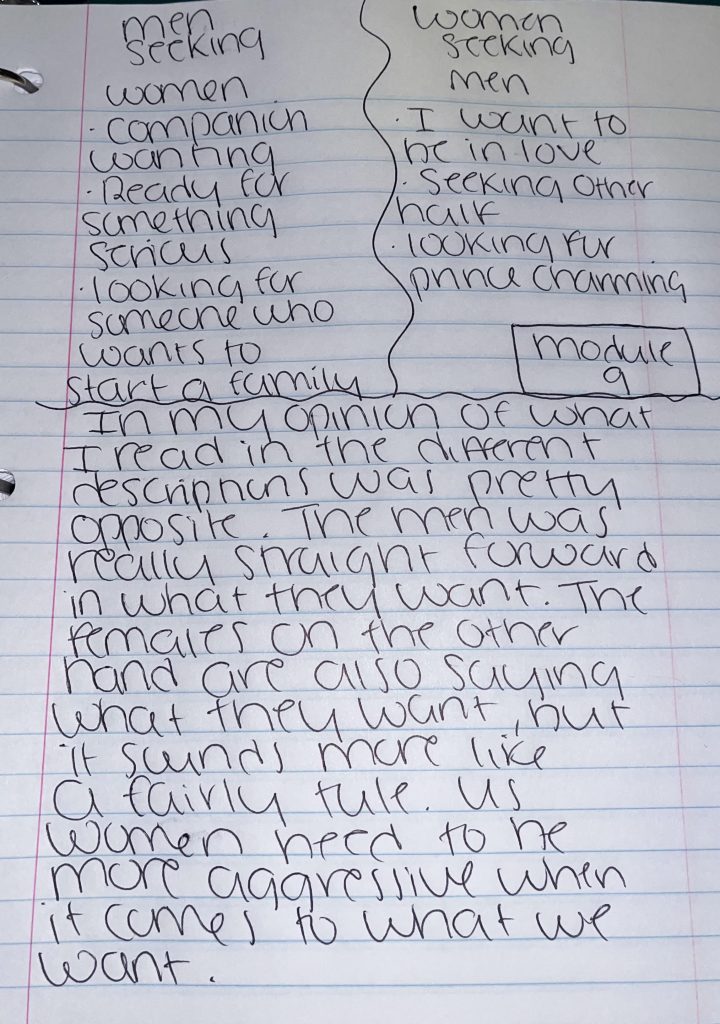 men
seeking
women
· companion
wanting
· Ready for
something
serious
· looking for
someone who
wants to
start a family
women
seeking
men
· I want to
be in love
· seeking other
half
· looking for
prince charming
module
9
In my opinion of what
I read in the different
descriptions was pretty
opposite. The men was
really straight forward
in what they want. The
females on the other
hand are also saying
what they want, but
it sounds more like
a fairly tale. us
women need to be
more aggressive when
it comes to what we
want.